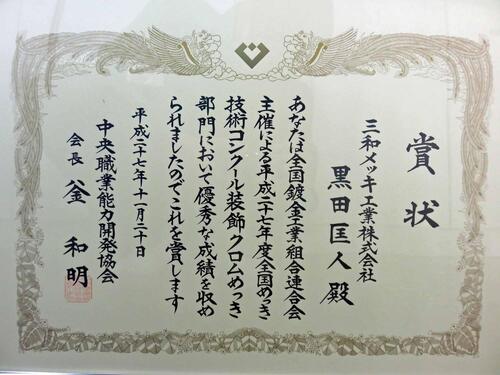 賞状
三和メッキ工業株式会社
黒田匡人殿
あなたは全国鍍金工業組合連合会
主催による平成二十七年度全国めっき
技術コンクール装飾クロムめっき
部門において優秀な成績を収め
られましたのでこれを賞します
平成二十七年十一月二十日
中央職業能力開発協会
会長 釡和明